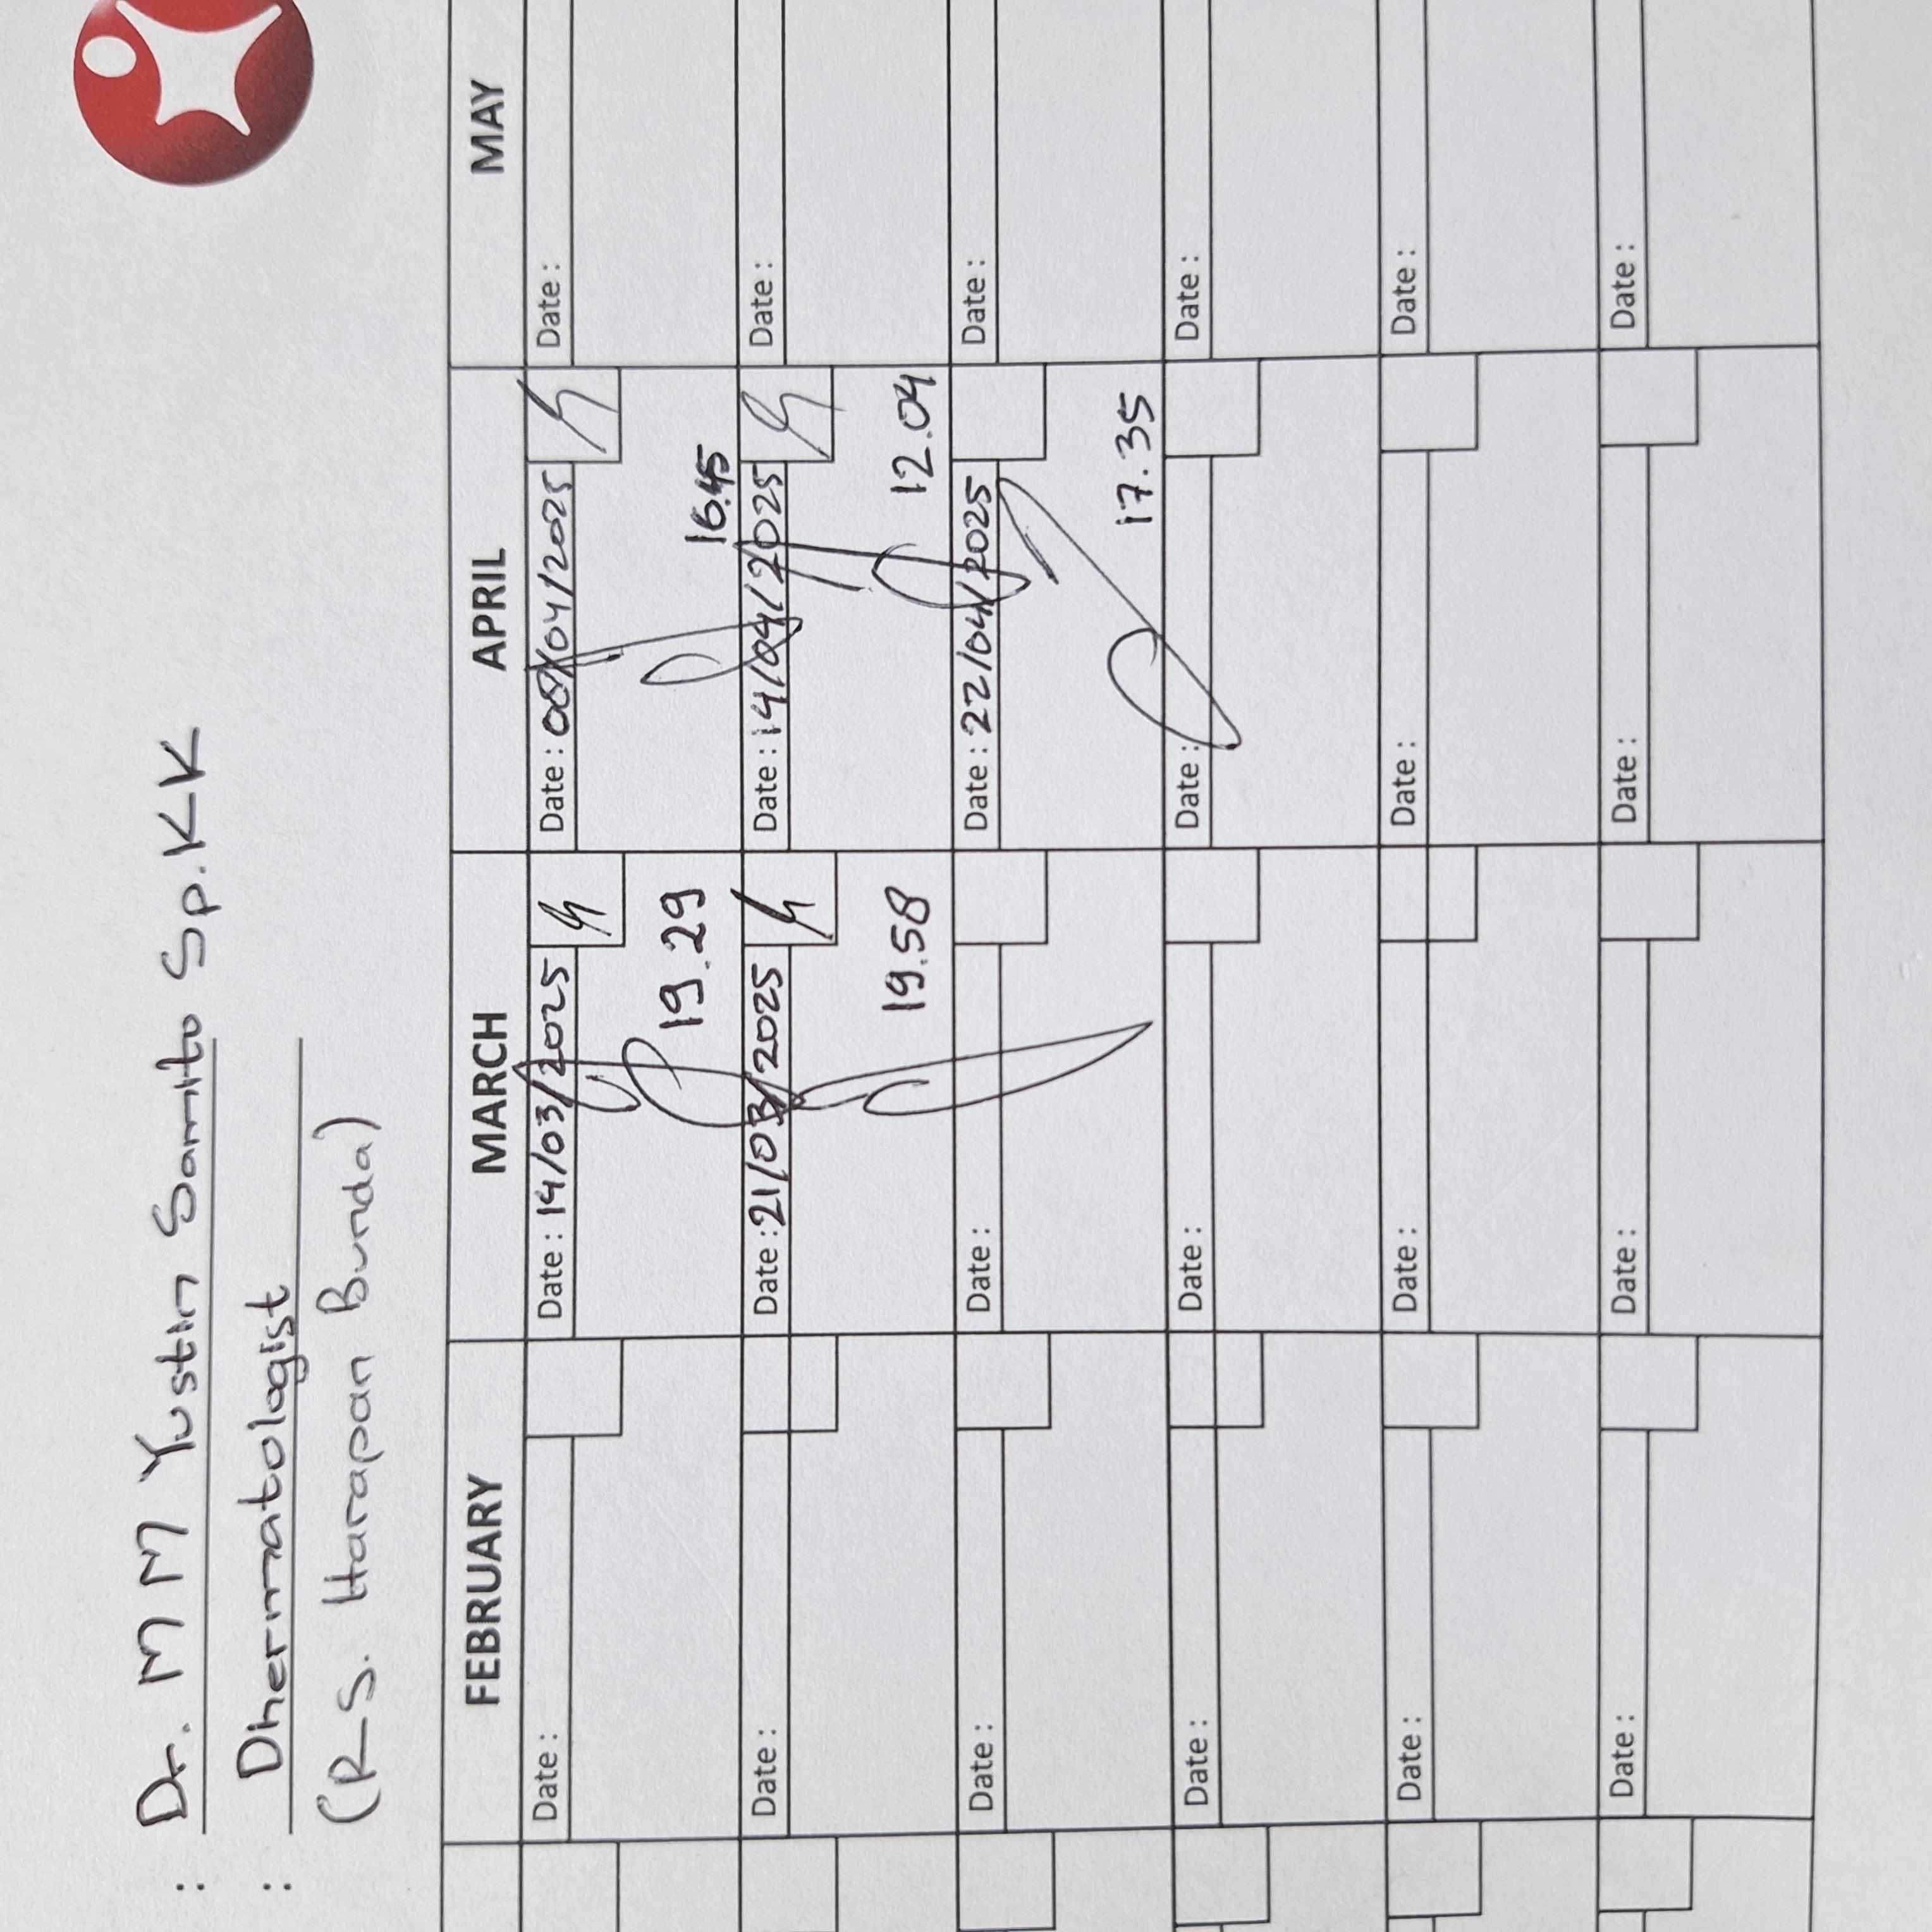 : Dr. M M Yustin Samito Sp.KK
: Dhermatologist
(R.S. Harapan Bunda)
FEBRUARY MARCH APRIL MAY
Date : Date : 14/03/2025 Date : 08/04/2025 Date :
19.29 16.45
Date : Date : 21/03/2025 Date : 14/04/2025 Date :
19.58 12.04
Date : Date : Date : 22/04/2025 Date :
17.35
Date : Date : Date : Date :
Date : Date : Date : Date :
Date : Date : Date : Date :